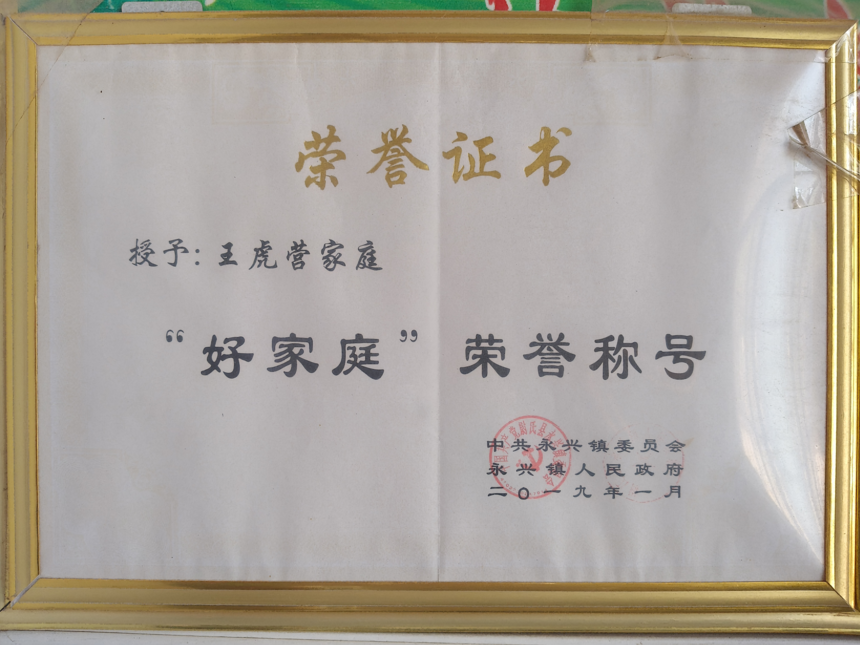 荣誉证书
授予：王虎营家庭
“好家庭”荣誉称号
中共永兴镇委员会
永兴镇人民政府
二〇一九年一月